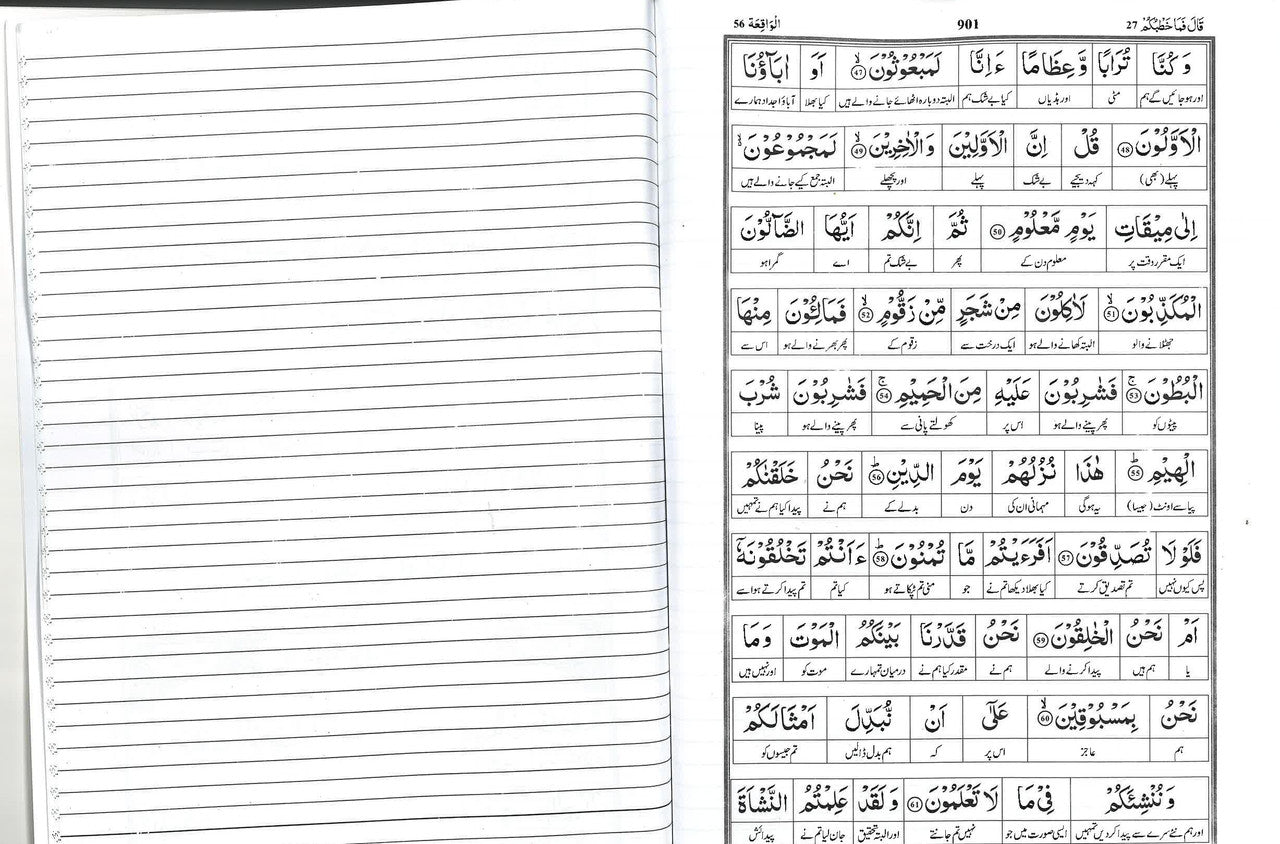 قَالَ فَمَا خَطْبُكُمْ 27 901 اَلْوَاقِعَة 56
وَ كُنَّا تُرَابًا وَّ عِظَامًا ءَ اِنَّا لَمَبْعُوْثُوْنَ ﴿47﴾ اَوَ اٰبَآؤُنَا
اور ہو جائیں گے ہم مٹی اور ہڈیاں کیا بے شک ہم البتہ دوبارہ اٹھائے جانے والے ہیں کیا بھلا آباؤ اجداد ہمارے
الْاَوَّلُوْنَ ﴿48﴾ قُلْ اِنَّ الْاَوَّلِيْنَ وَ الْاٰخِرِيْنَ ﴿49﴾ لَمَجْمُوْعُوْنَ
پہلے (بھی) کہہ دیجیے بے شک پہلے اور پچھلے البتہ جمع کیے جانے والے ہیں
اِلٰى مِيْقَاتِ يَوْمٍ مَّعْلُوْمٍ ﴿50﴾ ثُمَّ اِنَّكُمْ اَيُّهَا الضَّآلُّوْنَ
ایک مقرر وقت پر معلوم دن کے پھر بے شک تم اے گمراہو
الْمُكَذِّبُوْنَ ﴿51﴾ لَاٰكِلُوْنَ مِنْ شَجَرٍ مِّنْ زَقُّوْمٍ ﴿52﴾ فَمَالِـُٔوْنَ مِنْهَا
جھٹلانے والو البتہ کھانے والے ہو ایک درخت سے زقوم کے پھر بھرنے والے ہو اس سے
الْبُطُوْنَ ﴿53﴾ فَشٰرِبُوْنَ عَلَيْهِ مِنَ الْحَمِيْمِ ﴿54﴾ فَشٰرِبُوْنَ شُرْبَ
پیٹوں کو پھر پینے والے ہو اس پر کھولتے پانی سے پھر پینے والے ہو پینا
الْهِيْمِ ﴿55﴾ هٰذَا نُزُلُهُمْ يَوْمَ الدِّيْنِ ﴿56﴾ نَحْنُ خَلَقْنٰكُمْ
پیاسے اونٹ (جیسا) یہ ہوگی مہمانی ان کی دن بدلے کے ہم نے پیدا کیا ہم نے تمہیں
فَلَوْ لَا تُصَدِّقُوْنَ ﴿57﴾ اَفَرَءَيْتُمْ مَّا تُمْنُوْنَ ﴿58﴾ ءَاَنْتُمْ تَخْلُقُوْنَهٗٓ
پس کیوں نہیں تم تصدیق کرتے کیا بھلا دیکھا تم نے جو منی تم ٹپکاتے ہو کیا تم تم پیدا کرتے ہو اسے
اَمْ نَحْنُ الْخٰلِقُوْنَ ﴿59﴾ نَحْنُ قَدَّرْنَا بَيْنَكُمُ الْمَوْتَ وَ مَا
یا ہم ہیں پیدا کرنے والے ہم نے مقدر کیا ہم نے درمیان تمہارے موت کو اور نہیں ہیں
نَحْنُ بِمَسْبُوْقِيْنَ ﴿60﴾ عَلٰٓى اَنْ نُّبَدِّلَ اَمْثَالَكُمْ
ہم عاجز اس پر کہ ہم بدل ڈالیں تم جیسوں کو
وَ نُنْشِئَكُمْ فِيْ مَا لَا تَعْلَمُوْنَ ﴿61﴾ وَ لَقَدْ عَلِمْتُمُ النَّشْاَةَ
اور ہم نئے سرے سے پیدا کر دیں تمہیں ایسی صورت میں جو نہیں تم جانتے اور البتہ تحقیق جان لیا تم نے پیدائش